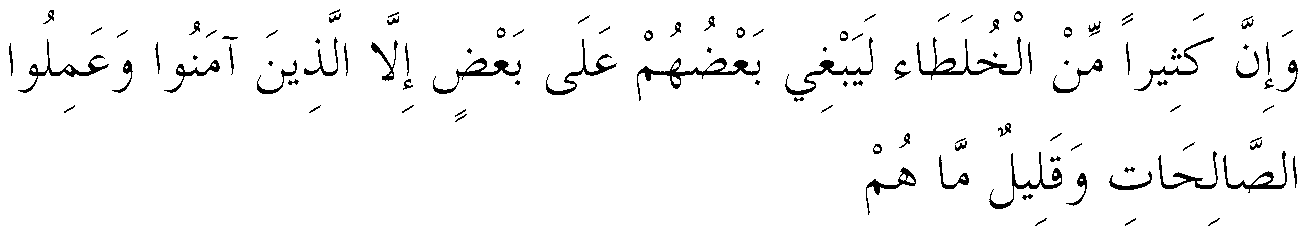 وَإِنَّ كَثِيراً مِّنْ الْخُلَطَاء لَيَبْغِي بَعْضُهُمْ عَلَى بَعْضٍ إِلَّا الَّذِينَ آمَنُوا وَعَمِلُوا
الصَّالِحَاتِ وَقَلِيلٌ مَّا هُمْ